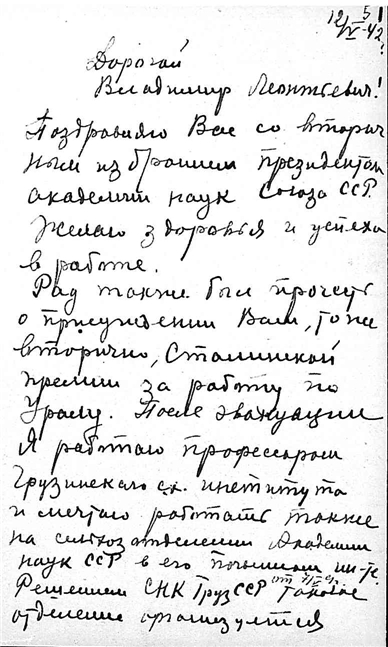 12/V-42
Дорогой
Владимир Леонтьевич!
Поздравляю Вас со вторич
ным избранием президентом
академии наук Союза ССР.
Желаю здоровья и успеха
в работе.
Рад также был прочесть
о присуждении Вам, тоже
вторично, Сталинской
премии за работу по
Уралу. После эвакуации
Я работаю профессором
Грузинского с.х. института
и мечтаю работать также
на сельхозотделении Академии
наук ССР в его почвенном ин-те.
Решением СНК ГрузССР от таковое
отделение организуется